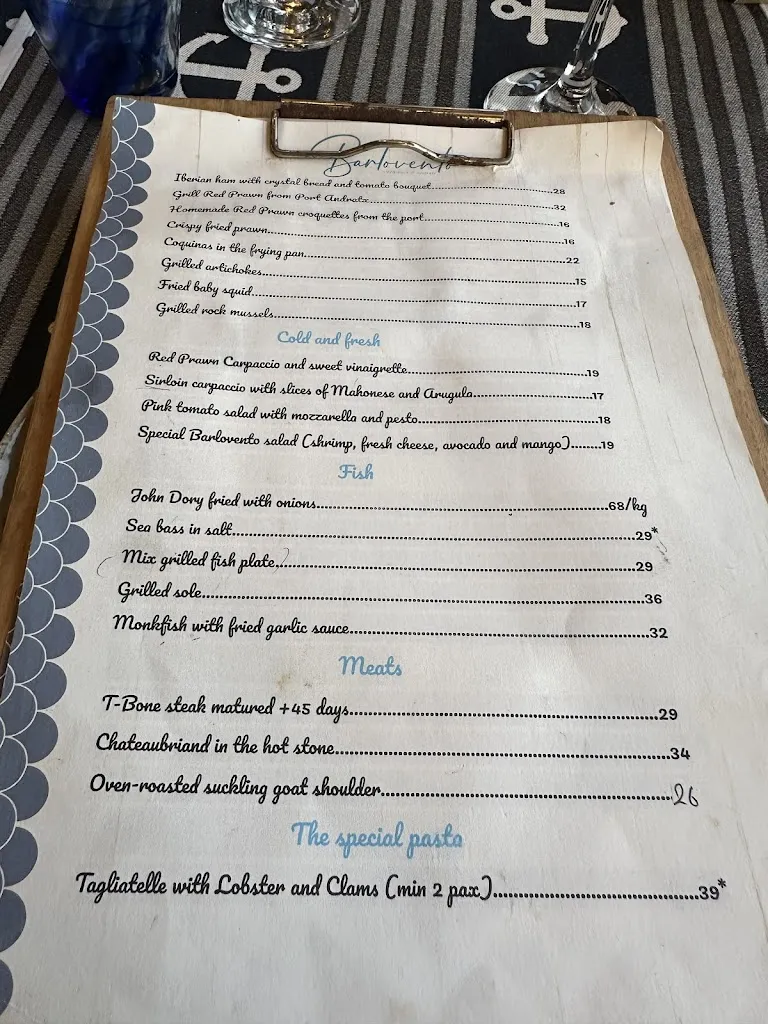 Barlovento
Iberian ham with crystal bread and tomato bouquet....................28
Grill Red Prawn from Port Andratx....................32
Homemade Red Prawn croquettes from the port....................16
Crispy fried prawn....................16
Coquinas in the frying pan....................22
Grilled artichokes....................15
Fried baby squid....................17
Grilled rock mussels....................18
Cold and fresh
Red Prawn Carpaccio and sweet vinaigrette....................19
Sirloin carpaccio with slices of Mahonese and Arugula....................17
Pink tomato salad with mozzarella and pesto....................18
Special Barlovento salad (shrimp, fresh cheese, avocado and mango)........19
Fish
John Dory fried with onions....................68/kg
Sea bass in salt....................29*
Mix grilled fish plate....................29
Grilled sole....................36
Monkfish with fried garlic sauce....................32
Meats
T-Bone steak matured +45 days....................29
Chateaubriand in the hot stone....................34
Oven-roasted suckling goat shoulder....................26
The special pasta
Tagliatelle with Lobster and Clams (min 2 pax)....................39*